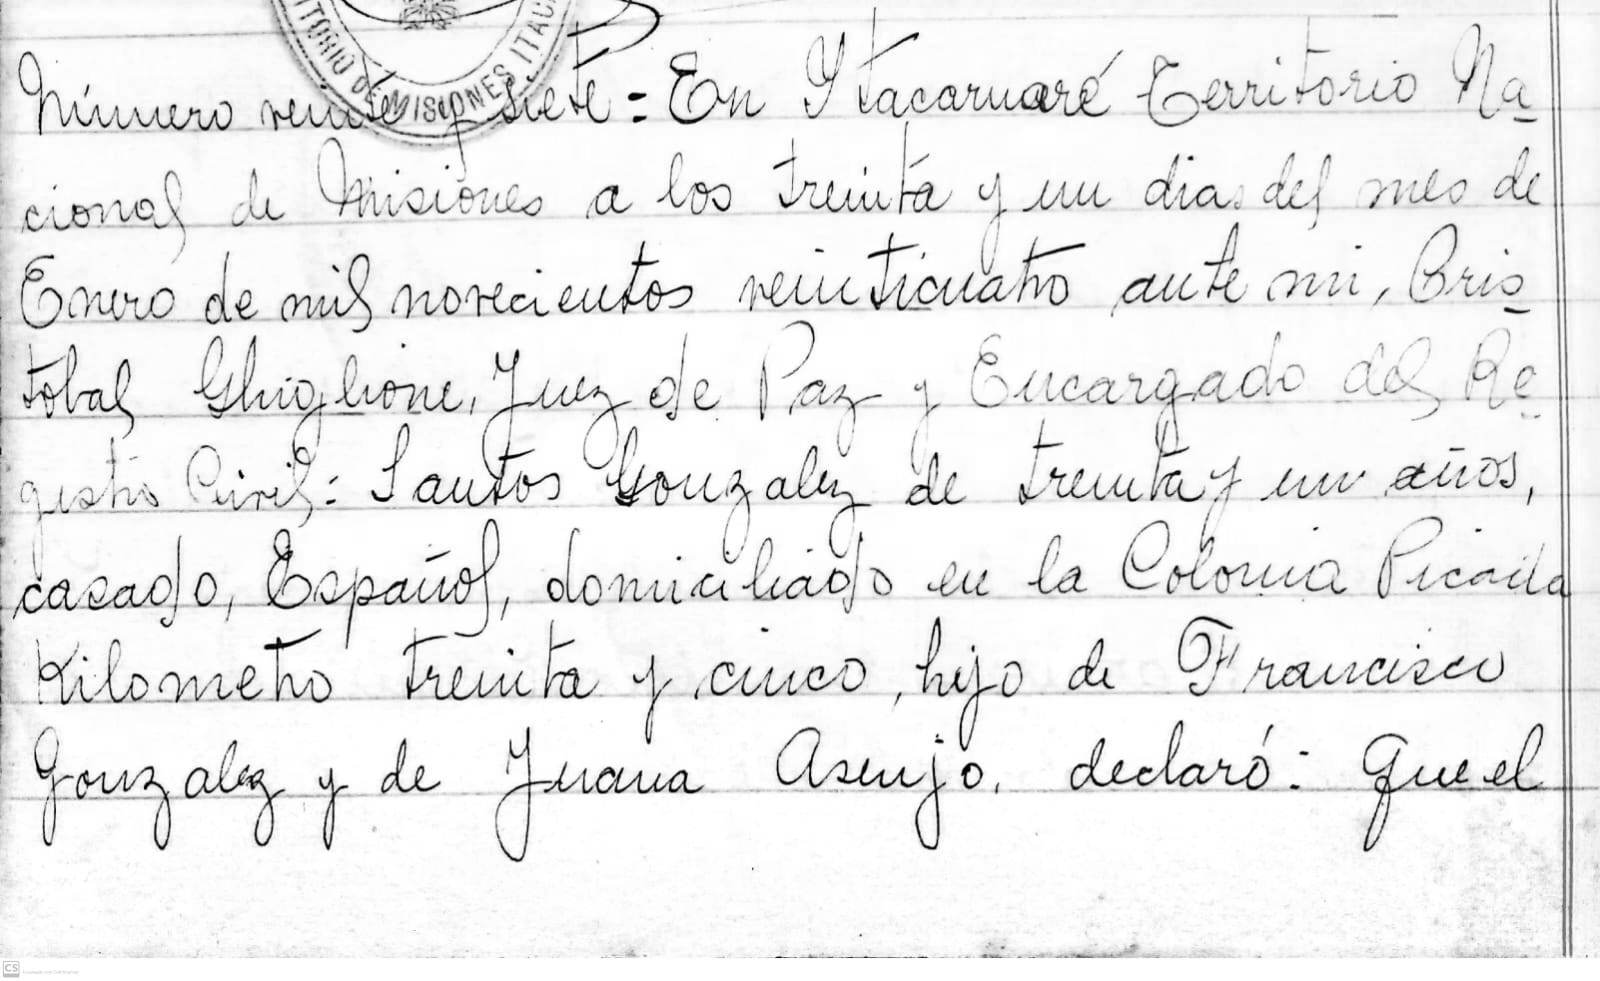 TORIO DE MISIONES ITAC
Número veinte y siete = En Itacaruaré Territorio Na
cional de Misiones a los treinta y un dias del mes de
Enero de mil novecientos veinticuatro ante mi, Cris
tobal Ghiglione, Juez de Paz y Encargado del Re
gistro Civil: Santos Gonzalez de treinta y un años,
casado, Español, domiciliado en la Colonia Picada
Kilometro treinta y cinco, hijo de Francisco
Gonzalez y de Juana Asenjo. declaró: Que el
CS